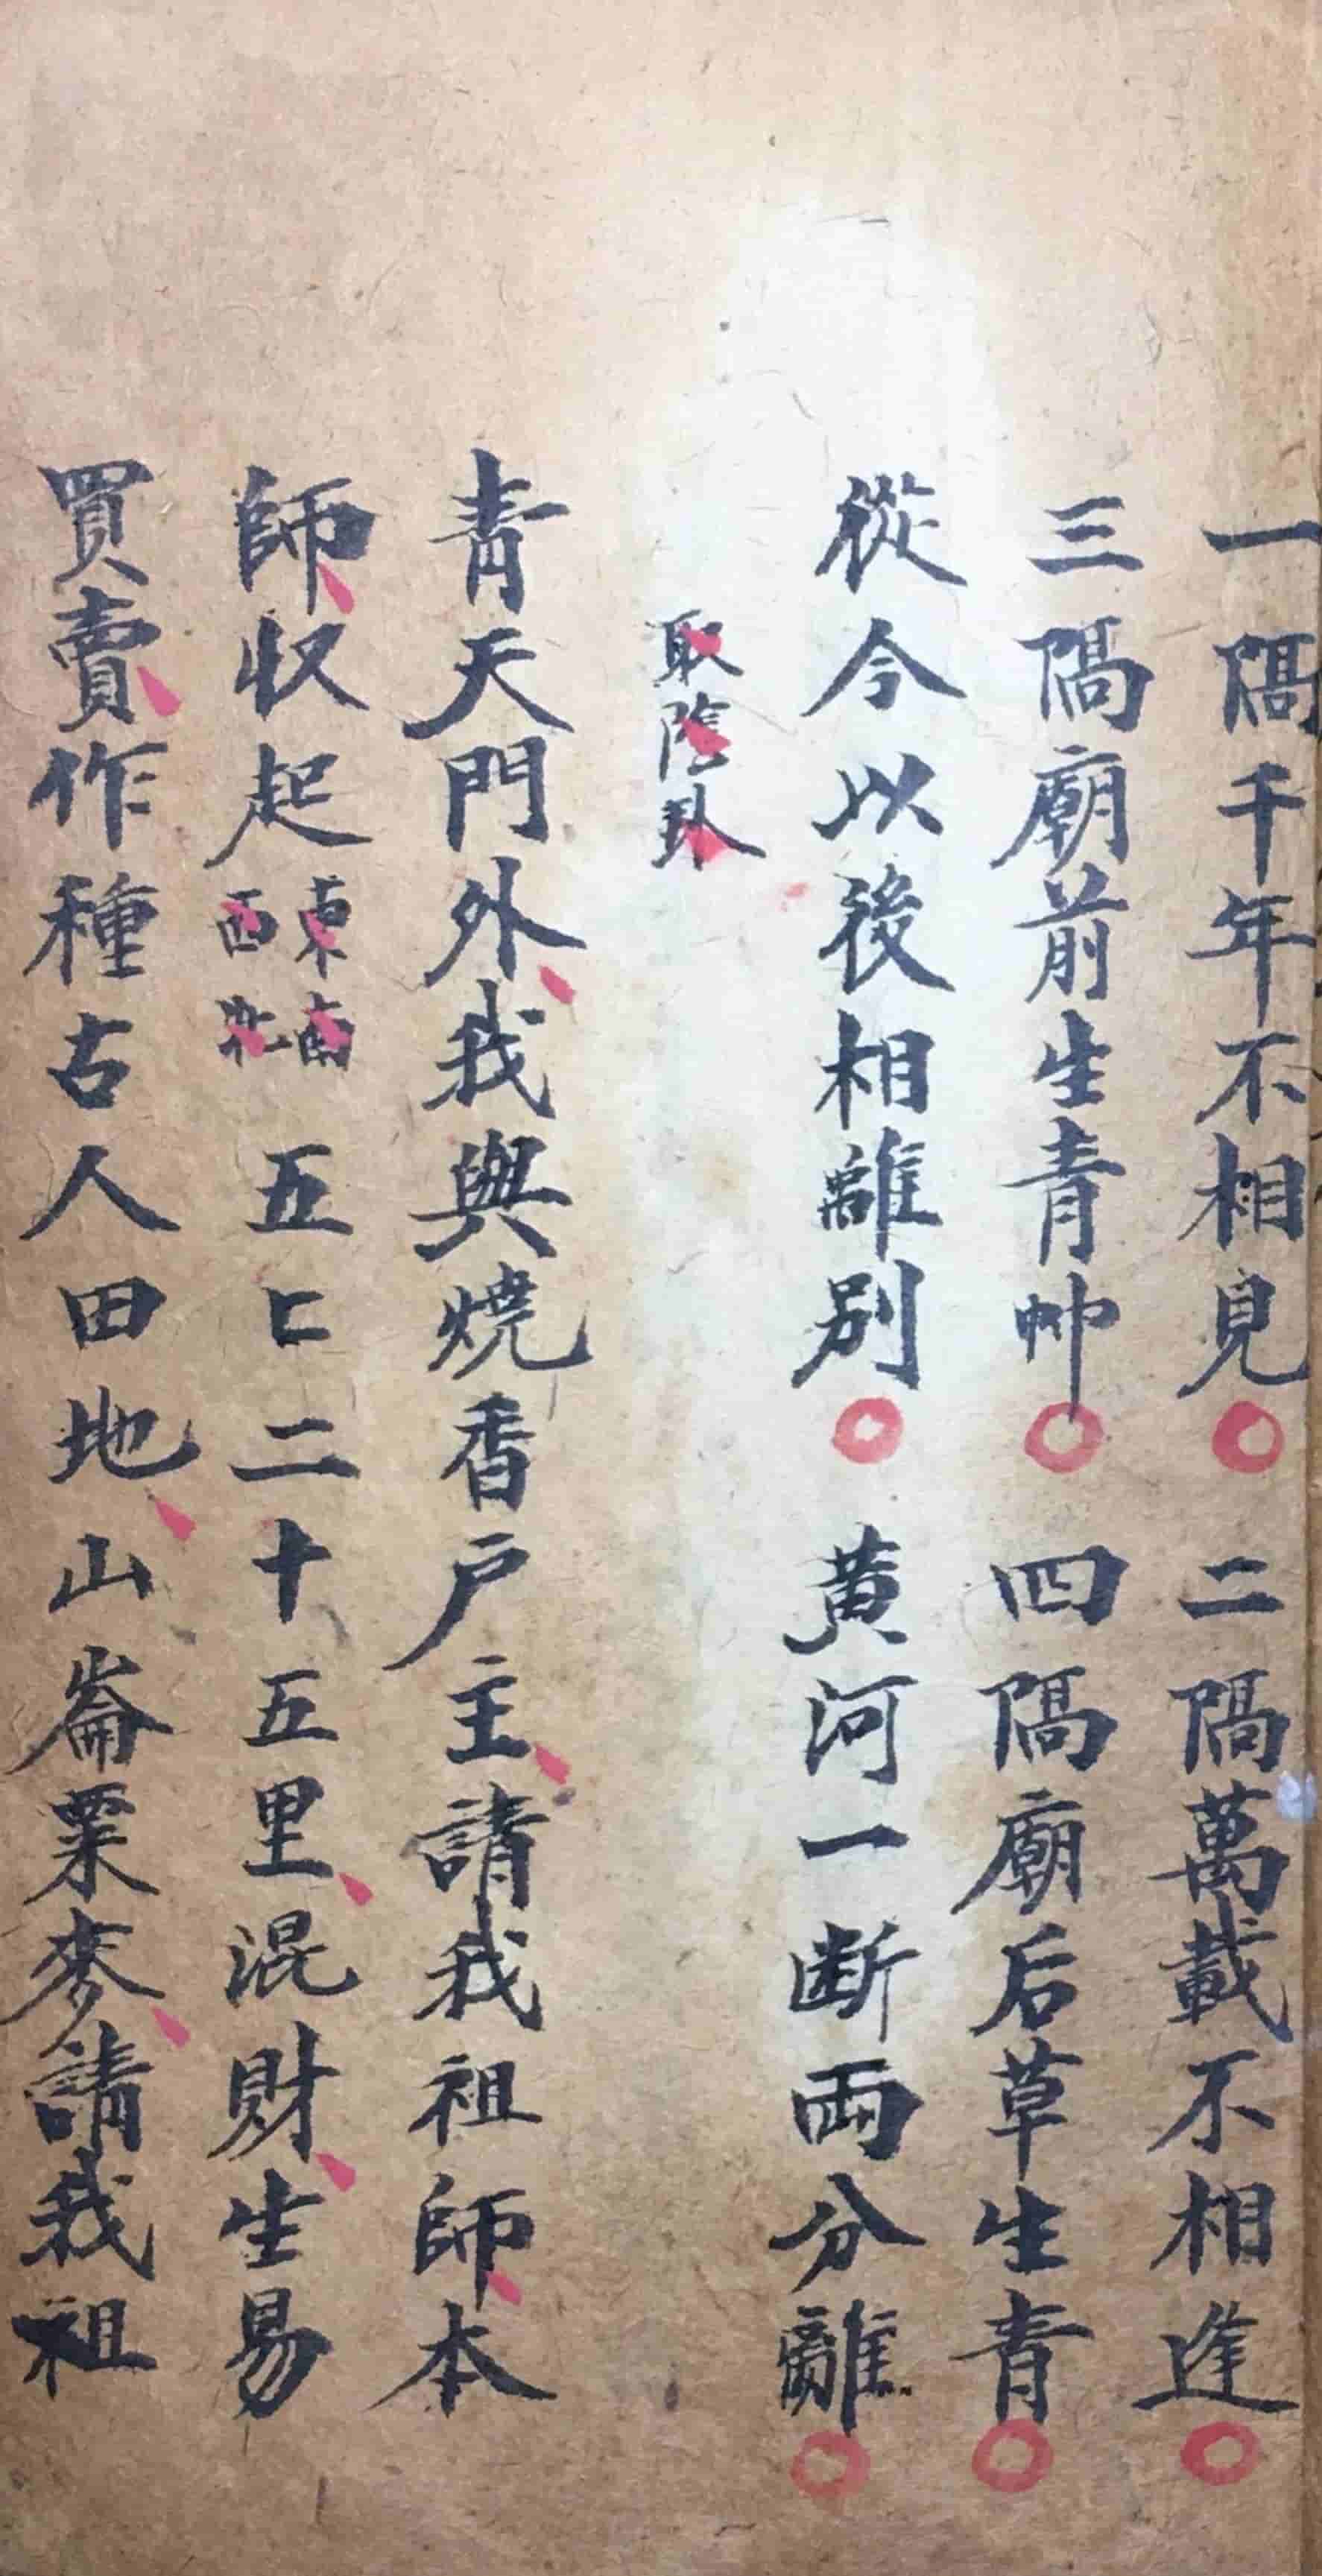 一隔千年不相見○二隔萬載不相逢○
三隔廟前生青艸○四隔廟后草生青○
從今以後相離別○黃河一断兩分離○
取陰卦
青天門外我與燒香戶主請我祖師本
師收起東南西北五匕二十五里混財生易
買賣作種古人田地山崙粟麥請我祖